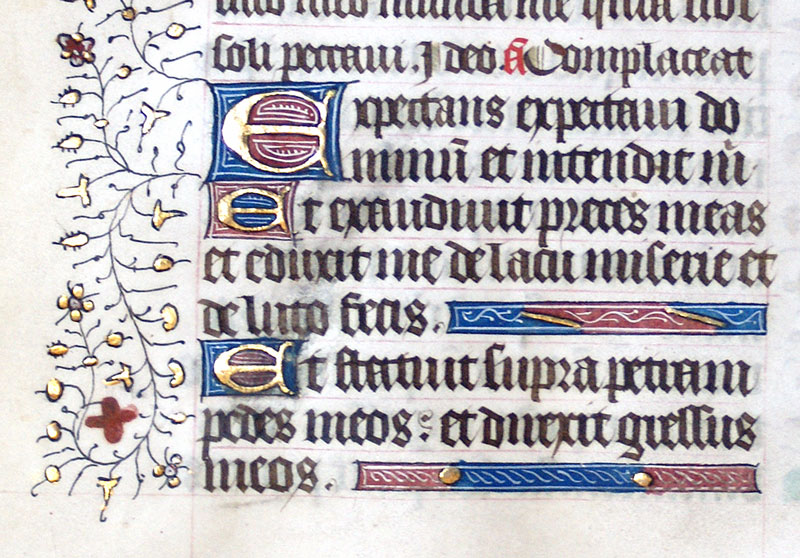 soli peccaui. Ideo. añ Complaceat
Expectans expectaui do
minũ et intendit m̃
Et exaudiuit preces meas
et eduxit me de lacu miserie et
de luto fecis.
Et statuit supra petram
pedes meos: et direxit gressus
meos.